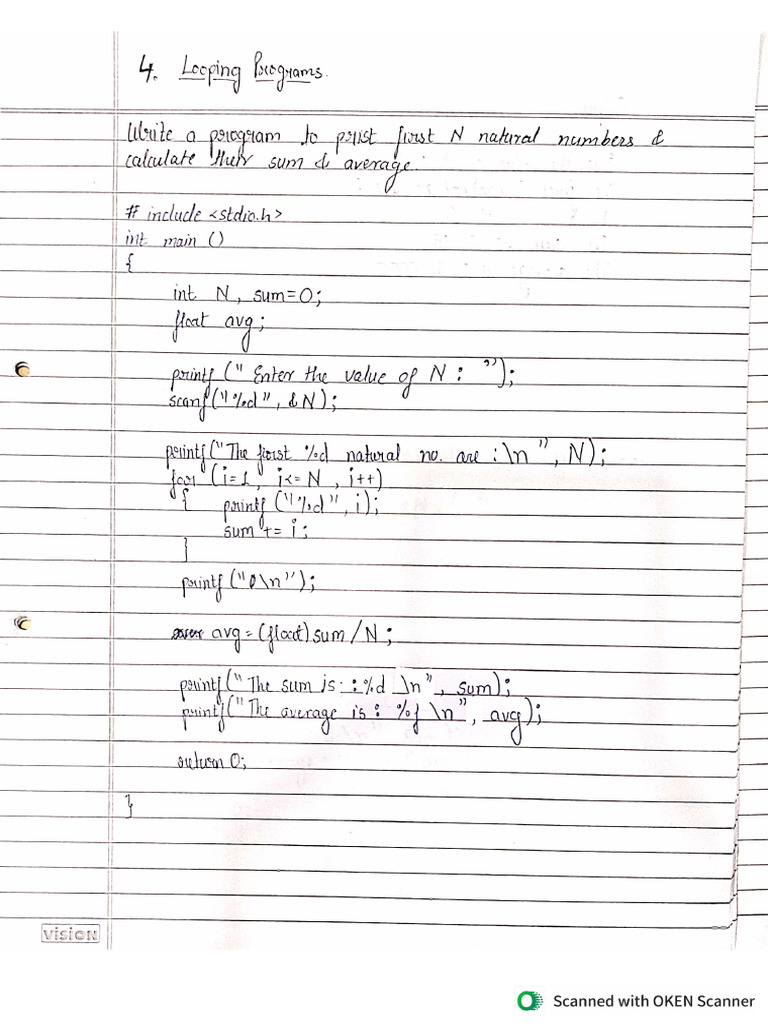 4. Looping Programs.
Write a program to print first N natural numbers &
calculate their sum & average.
# include <stdio.h>
int main ()
{
int N, sum=0;
float avg;
printf (" Enter the value of N : ");
scanf("%d", &N);
printf("The first %d natural no. are :\n", N);
for (i=1, i<=N, i++)
{ printf ("%d", i);
sum += i;
}
printf("\n");
avg = (float) sum / N;
printf("The sum is : %d \n", sum);
printf("The average is : %f \n", avg);
return 0;
}
VISION
Scanned with OKEN Scanner